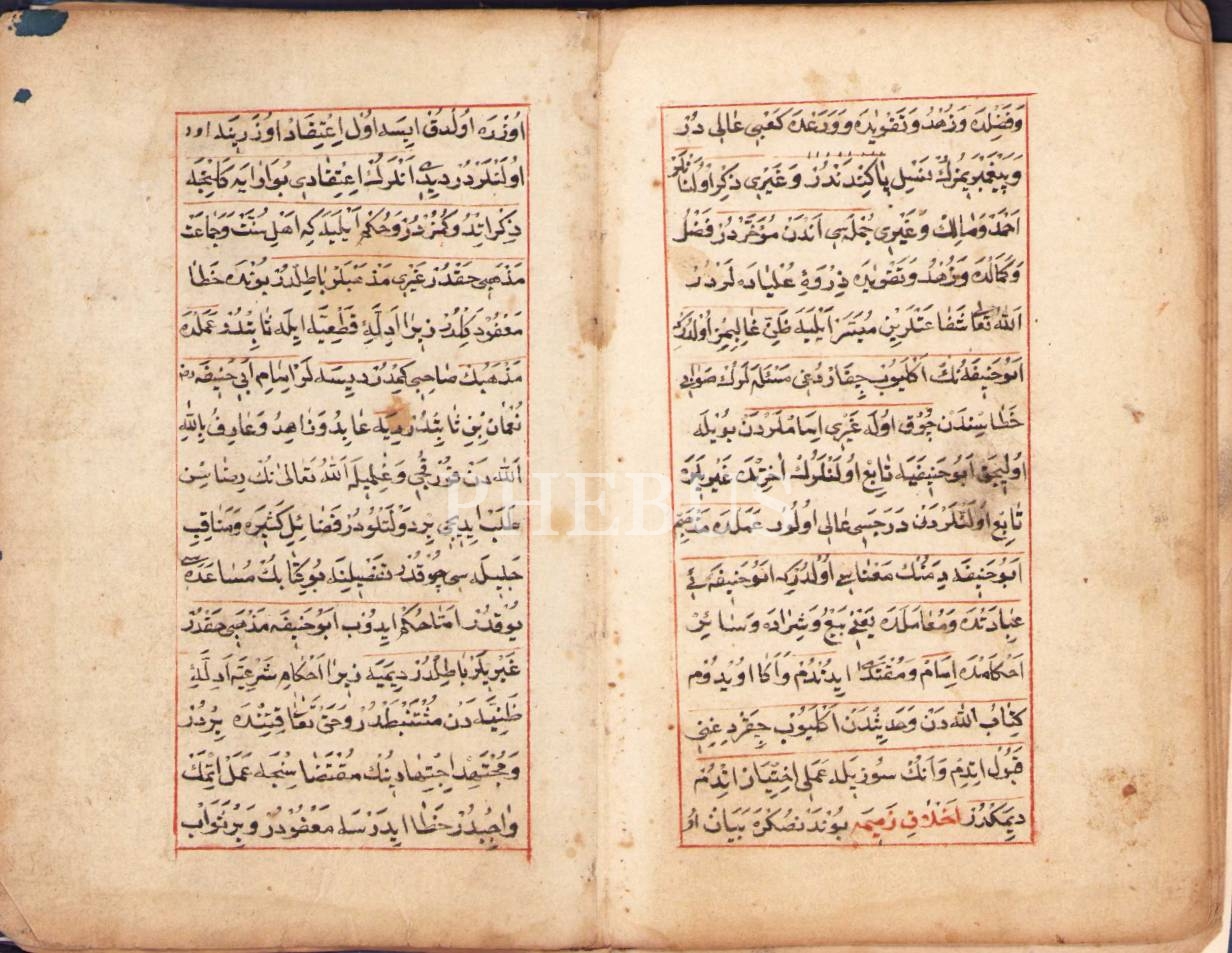 وفضلده وزهد وتقويده وورعده كعبى عالى در
وپيغمبريمزك نسل پاكيندندر وغيرى ذكر اولنانلر
احمد ومالك وغيرى جمله سى اندن مؤخردر فضل
وكمالده وزهد وتقويده ذروۀ علياده لردر
الله تعالى شفاعتلرين ميسر ايليه ظن غالبمز اولدركه
ابو حنيفه نك اكليوب چقاردغى مسئله لرك صوابى
خطاسندن چوق اوله غيرى اماملردن بويله
اوليجق ابو حنيفيه تابع اولنلرك اخرتده غيريلره
تابع اولنلردن درجسى عالى اولور عملده مذهبم
ابو حنيفه ديمنك معناسى اولدركه ابو حنيفه ئى
عبادتده ومعاملده يعنى بيع وشراده وسائر
احكامده امام ومقتدا ايدندم واكا اويدوم
كتاب الله دن وحديثدن اكليوب چقردغنى
قبول اتدم وانك سوزيله عملى اختيار اتدم
ديمكدر اخلاق ذميمه بوندنصكره بيان او
اوزره اولدق ايسه اول اعتقاد اوزرينه
اولنلردر ديه انلرك اعتقادى بو ارايه كلنجه
ذكر اتدوكمزدر وحكم ايليه كه اهل سنت وجماعت
مذهبى حقدر غيرى مذهبلر باطلدر بونده خطا
معفو دكلدر زيرا ادلۀ قطعيه ايله ثابتدر عملده
مذهبك صاحبى كمدر ديسه لر امام ابى حنيفه
نعمان بن ثابتدر ديه عابد وزاهد وعارف بالله
الله دن قورقجى وعلميله الله تعالى نك رضاسن
طلب ايديجى بر دولتلودر فضائل كثيره ومناقب
جليله سى چوقدر تفضيلنه بو كتابك مساعده سى
يوقدر اما حكم ايدوب ابو حنيفه مذهبى حقدر
غيريلر باطلدر ديميه زيرا احكام شرعيه ادلۀ
ظنيه دن مستنبطدر وحق تعالى قتنده بردر
ومجتهد اجتهادينك مقتضاسنجه عمل اتمك
واجبدر خطا ايدرسه معفودر وبر ثواب
PHEBUS